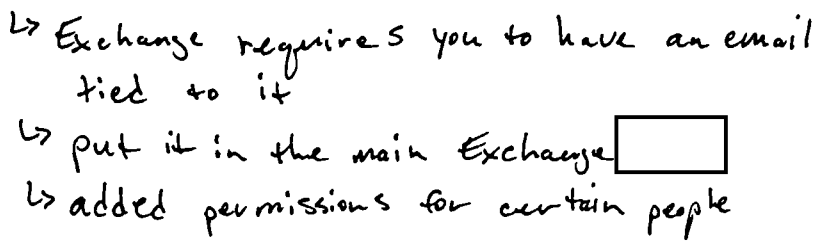 ↳ Exchange requires you to have an email
tied to it
↳ put it in the main Exchange
↳ added permissions for certain people